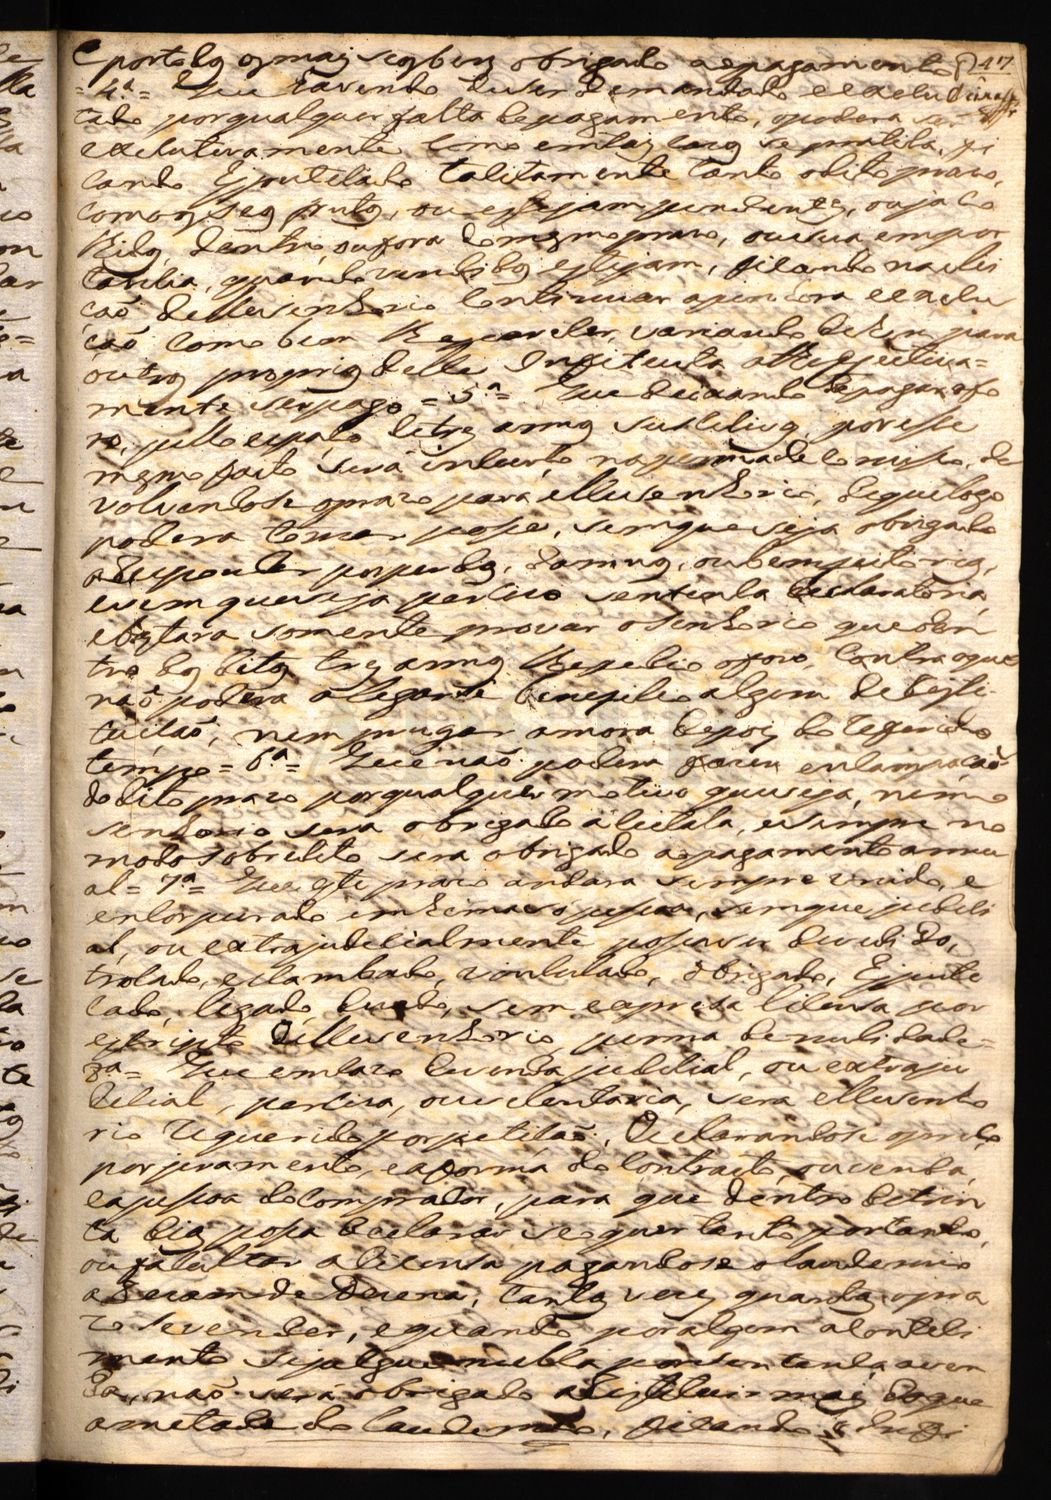 e por todos os mais seus bens obrigado ao pagamento 47
= 4ª = Que havendo de ser demandado e execu
tado por qualquer falta de pagamento, o poderá ser
executivamente como em tais casos se pratica, fi
cando Epotecado tacitamente tanto o dito prazo,
como os seus frutos, ou estejam pendentes, ou ja co
lhidos, dentro, ou fora do mesmo prazo, ou sua empor
tancia, quando vendidos estejam, ficando na elei
ção delle senhorio continuar a penhora e execu
ção como bem lhe parecer, variando de hens para
outros proprios delle Infiteuta athe efectiva=
mente ser pago = 5ª = Que deixando de pagar o fo
ro, pello espaço de tres annos sucecivos, por esse
mesmo facto será incurso na penna de Comisso, de
volvendose o prazo para elle senhorio, de que logo
poderá tomar posse, sem que seja obrigado
a responder por perdas, damnos, ou bemfeitorias,
e sem que seja percizo sentença declaratoria,
e bastara somente provar o senhorio que den
tro dos ditos tres annos lhe pedio o foro, contra o que
não poderá allegarse beneficio algum de resti-
tuição, nem purgar a mora depois do referido
tempo = 6ª = Que não poderá fazer encampação
do dito prazo por qualquer motivo que seja, nem o
senhorio será obrigado a aceitala, e sempre no
modo sobredito sera obrigado ao pagamento annu
al = 7ª = Que este prazo andara sempre unido, e
encorporado em huma só pessoa, sem que judici
al, ou extrajudicialmente possa ser dividido,
trocado, escambado, vinculado, obrigado, Epote
cado, legado, sem expressa licença por
escripto delle senhorio, penna de nulidade =
8ª = Que em cazo de venda judicial, ou extraju
dicial, perciza, ou voluntaria, sera elle senho
rio requerido por petição, declarandose o preço
por juramento, e a forma do contracto, ou venda,
e a pessoa do comprador, para que dentro de trin
ta dias possa declarar se quer tanto por tanto,
ou facultar a licença pagandose o laudemio
a rezam de Dezena, tantas vezes quantas o pra
zo se vender, e quando por algum aconteci
mento seja alguem nulla por sentença a ven
da, não será obrigado a restituir mais do que
ametade do laudemio, ficando